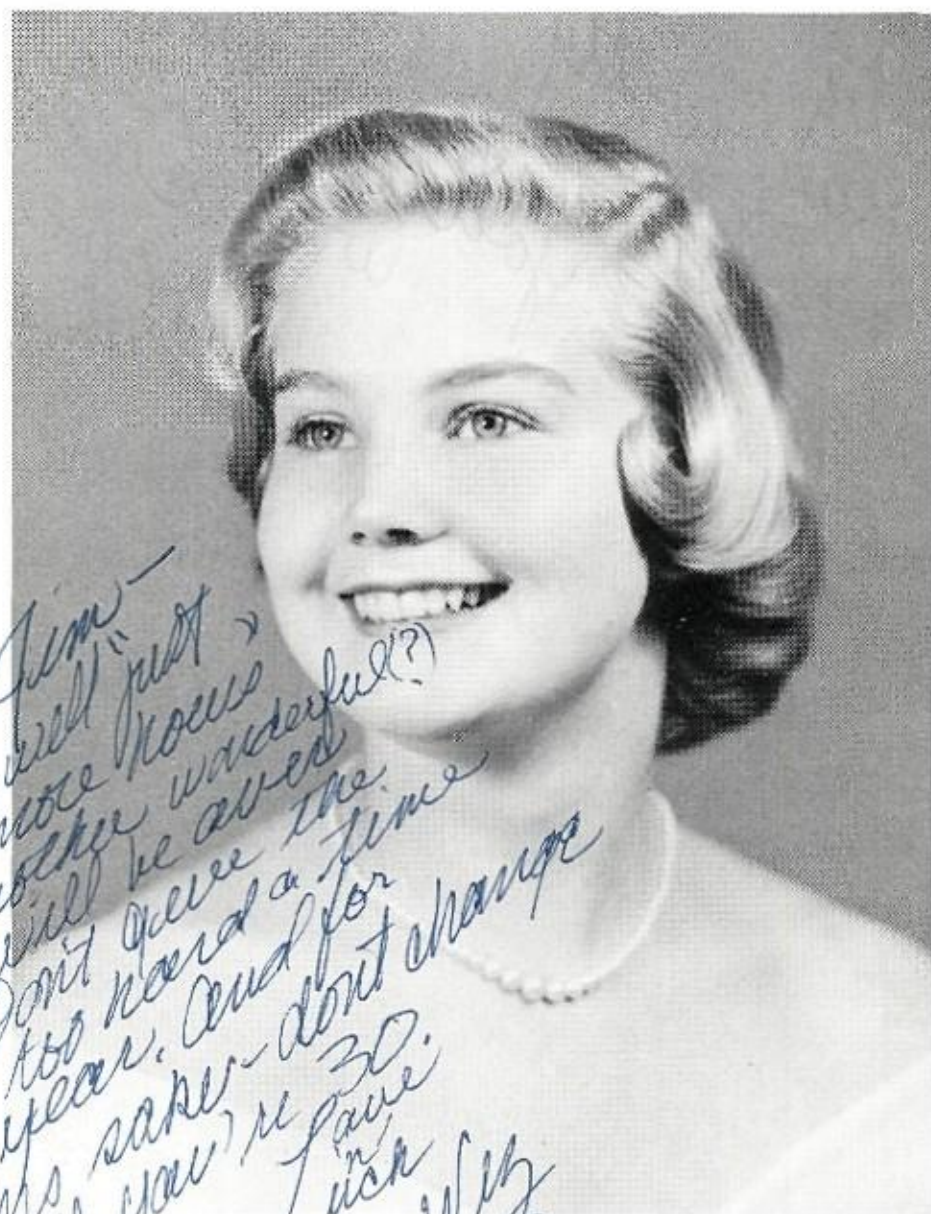 Jim -
well "just"
more hours
wonderful(?)
will be over
Don't give the
too hard a time
year. And for
sake - don't change
you're 30.
Love
n'